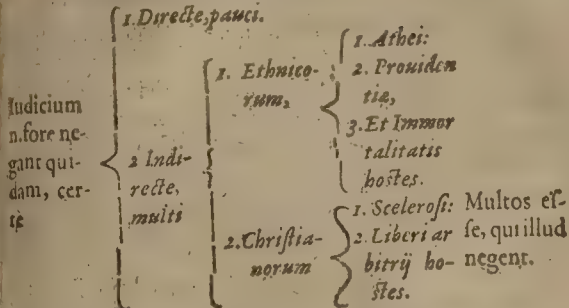 1. Directe, pauci.
Iudicium
n.fore ne-
gant qui-
dam, cer-
tè
2 Indi-
recte,
multi
1. Ethnico-
rum,
1. Athei:
2. Prouiden
tiæ,
3. Et Immor
talitatis
hostes.
2. Christia-
norum
1. Scelerosi:
2. Liberi ar
bitrij ho-
stes.
Multos es-
se, qui illud
negent.